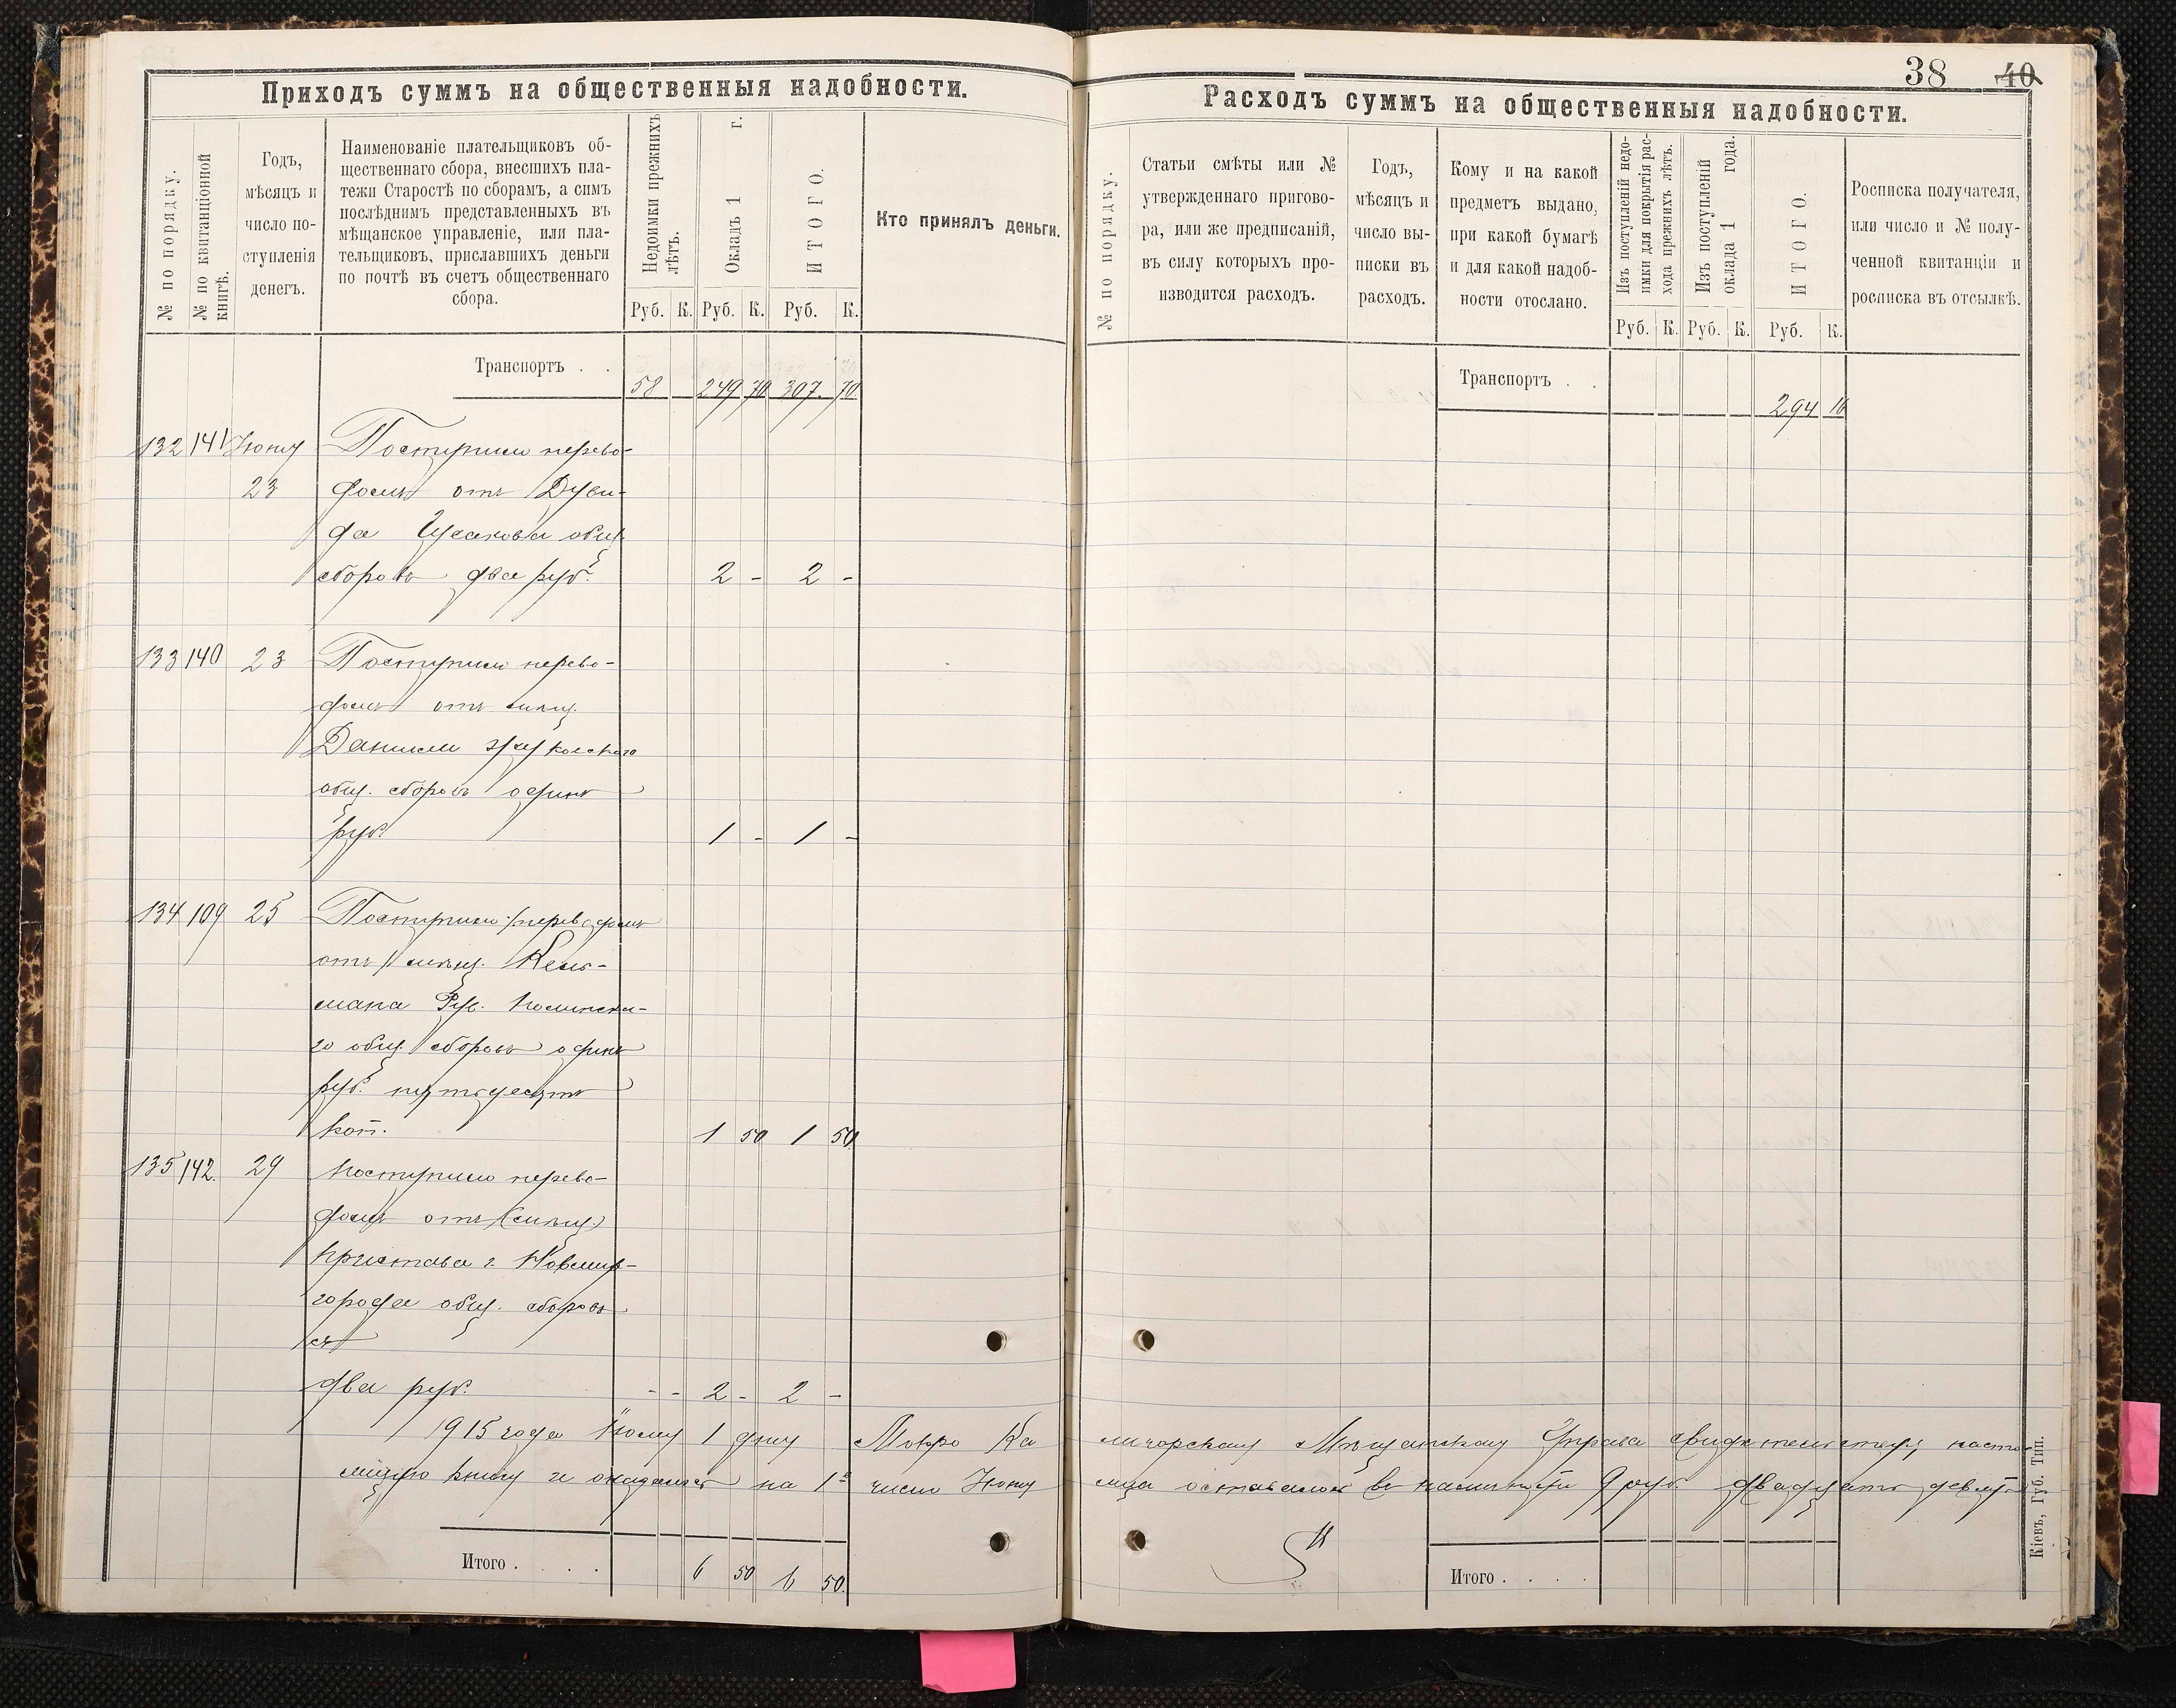 Приходъ суммъ на общественныя надобности.
№ по порядку.
№ по квитанціонной
книгѣ.
Годъ,
мѣсяцъ и
число по-
ступленія
денегъ.
Наименованіе плательщиковъ об-
щественнаго сбора, внесшихъ пла-
тежи Старостѣ по сборамъ, а симъ
послѣднимъ представленныхъ въ
мѣщанское управленіе, или пла-
тельщиковъ, приславшихъ деньги
по почтѣ въ счетъ общественнаго
сбора.
Недоимки прежнихъ
лѣтъ.
Окладъ 1 г.
ИТОГО.
Руб. К. Руб. К. Руб. К.
Кто принялъ деньги.
Транспортъ . .
58 249 70 307 70
132 141 Іюня Поступили перево-
23 домъ от Дуви-
да общ
сборовъ два руб.
2 - 2 -
133 140 23 Поступило перево-
домъ отъ мѣщ.
Данила
общ. сборовъ одинъ
руб.
1 - 1 -
134 109 25 Поступило переводомъ
отъ мѣщ. Кель-
мана Рув.
го общ. сборовъ одинъ
руб. пятьдесятъ
коп.
1 50 1 50
135 142. 29 Поступило перево-
домъ отъ
Пристава г. Новомир-
города общ. сборовъ
два руб.
- - 2 - 2 -
1915 года 1 дня
книгу и на 1е число Іюня
Итого . . . .
6 50 6 50.
38 40
Расходъ суммъ на общественныя надобности.
№ по порядку.
Статьи смѣты или №
утвержденнаго пригово-
ра, или же предписаній,
въ силу которыхъ про-
изводится расходъ.
Годъ,
мѣсяцъ и
число вы-
писки въ
расходъ.
Кому и на какой
предметъ выдано,
при какой бумагѣ
и для какой надоб-
ности отослано.
Изъ поступленій недо-
имки для покрытія рас-
хода прежнихъ лѣтъ.
Изъ поступленій
оклада 1 года.
ИТОГО.
Руб. К. Руб. К. Руб. К.
Росписка получателя,
или число и № полу-
ченной квитанціи и
росписка въ отсылкѣ.
Транспортъ . .
294 16
Мѣщанская Управа
въ наличности 9 руб. двадцать девять
Итого . . . .
Кіевъ, Губ. Тип.